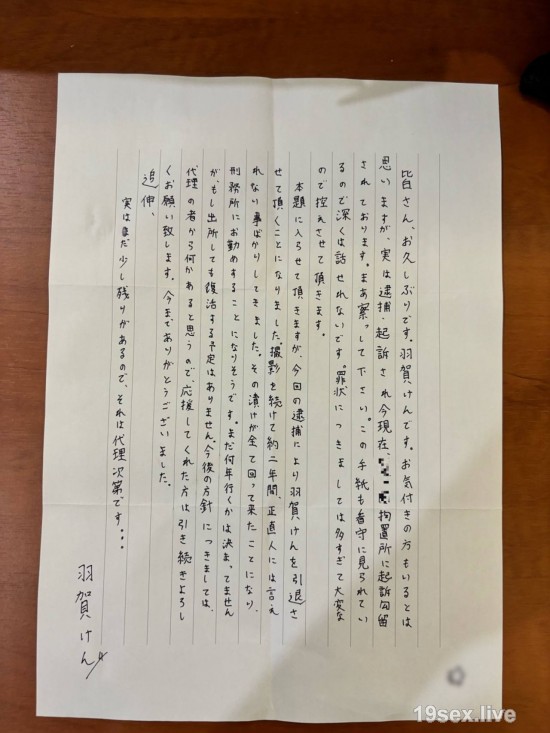 皆さん、お久しぶりです。羽賀けんです。お気付きの方もいるとは
思いますが、実は逮捕・起訴され今現在、拘置所に起訴勾留
されております。まあ察して下さい。この手紙も看守に見られてい
るので深くは話せれないです。罪状につきましては多すぎて大変な
ので控えさせて頂きます。
本題に入らせて頂きますが、今回の逮捕により羽賀けんを引退さ
せて頂くことになりました。撮影を続けて約二年間、正直人には言え
れない事ばかりしてきました。その漬けが全て回って来たことになり、
刑務所にお勤めすることになりそうです。まだ何年行くかは決まってません
が、もし出所しても復活する予定はありません。今後の方針につきましては、
代理の者から何かあると思うので、応援してくれた方は引き続きよろし
くお願い致します。今までありがとうございました。
追伸、
実はまだ少し残りがあるので、それは代理次第です...
羽賀けん
19sex.live